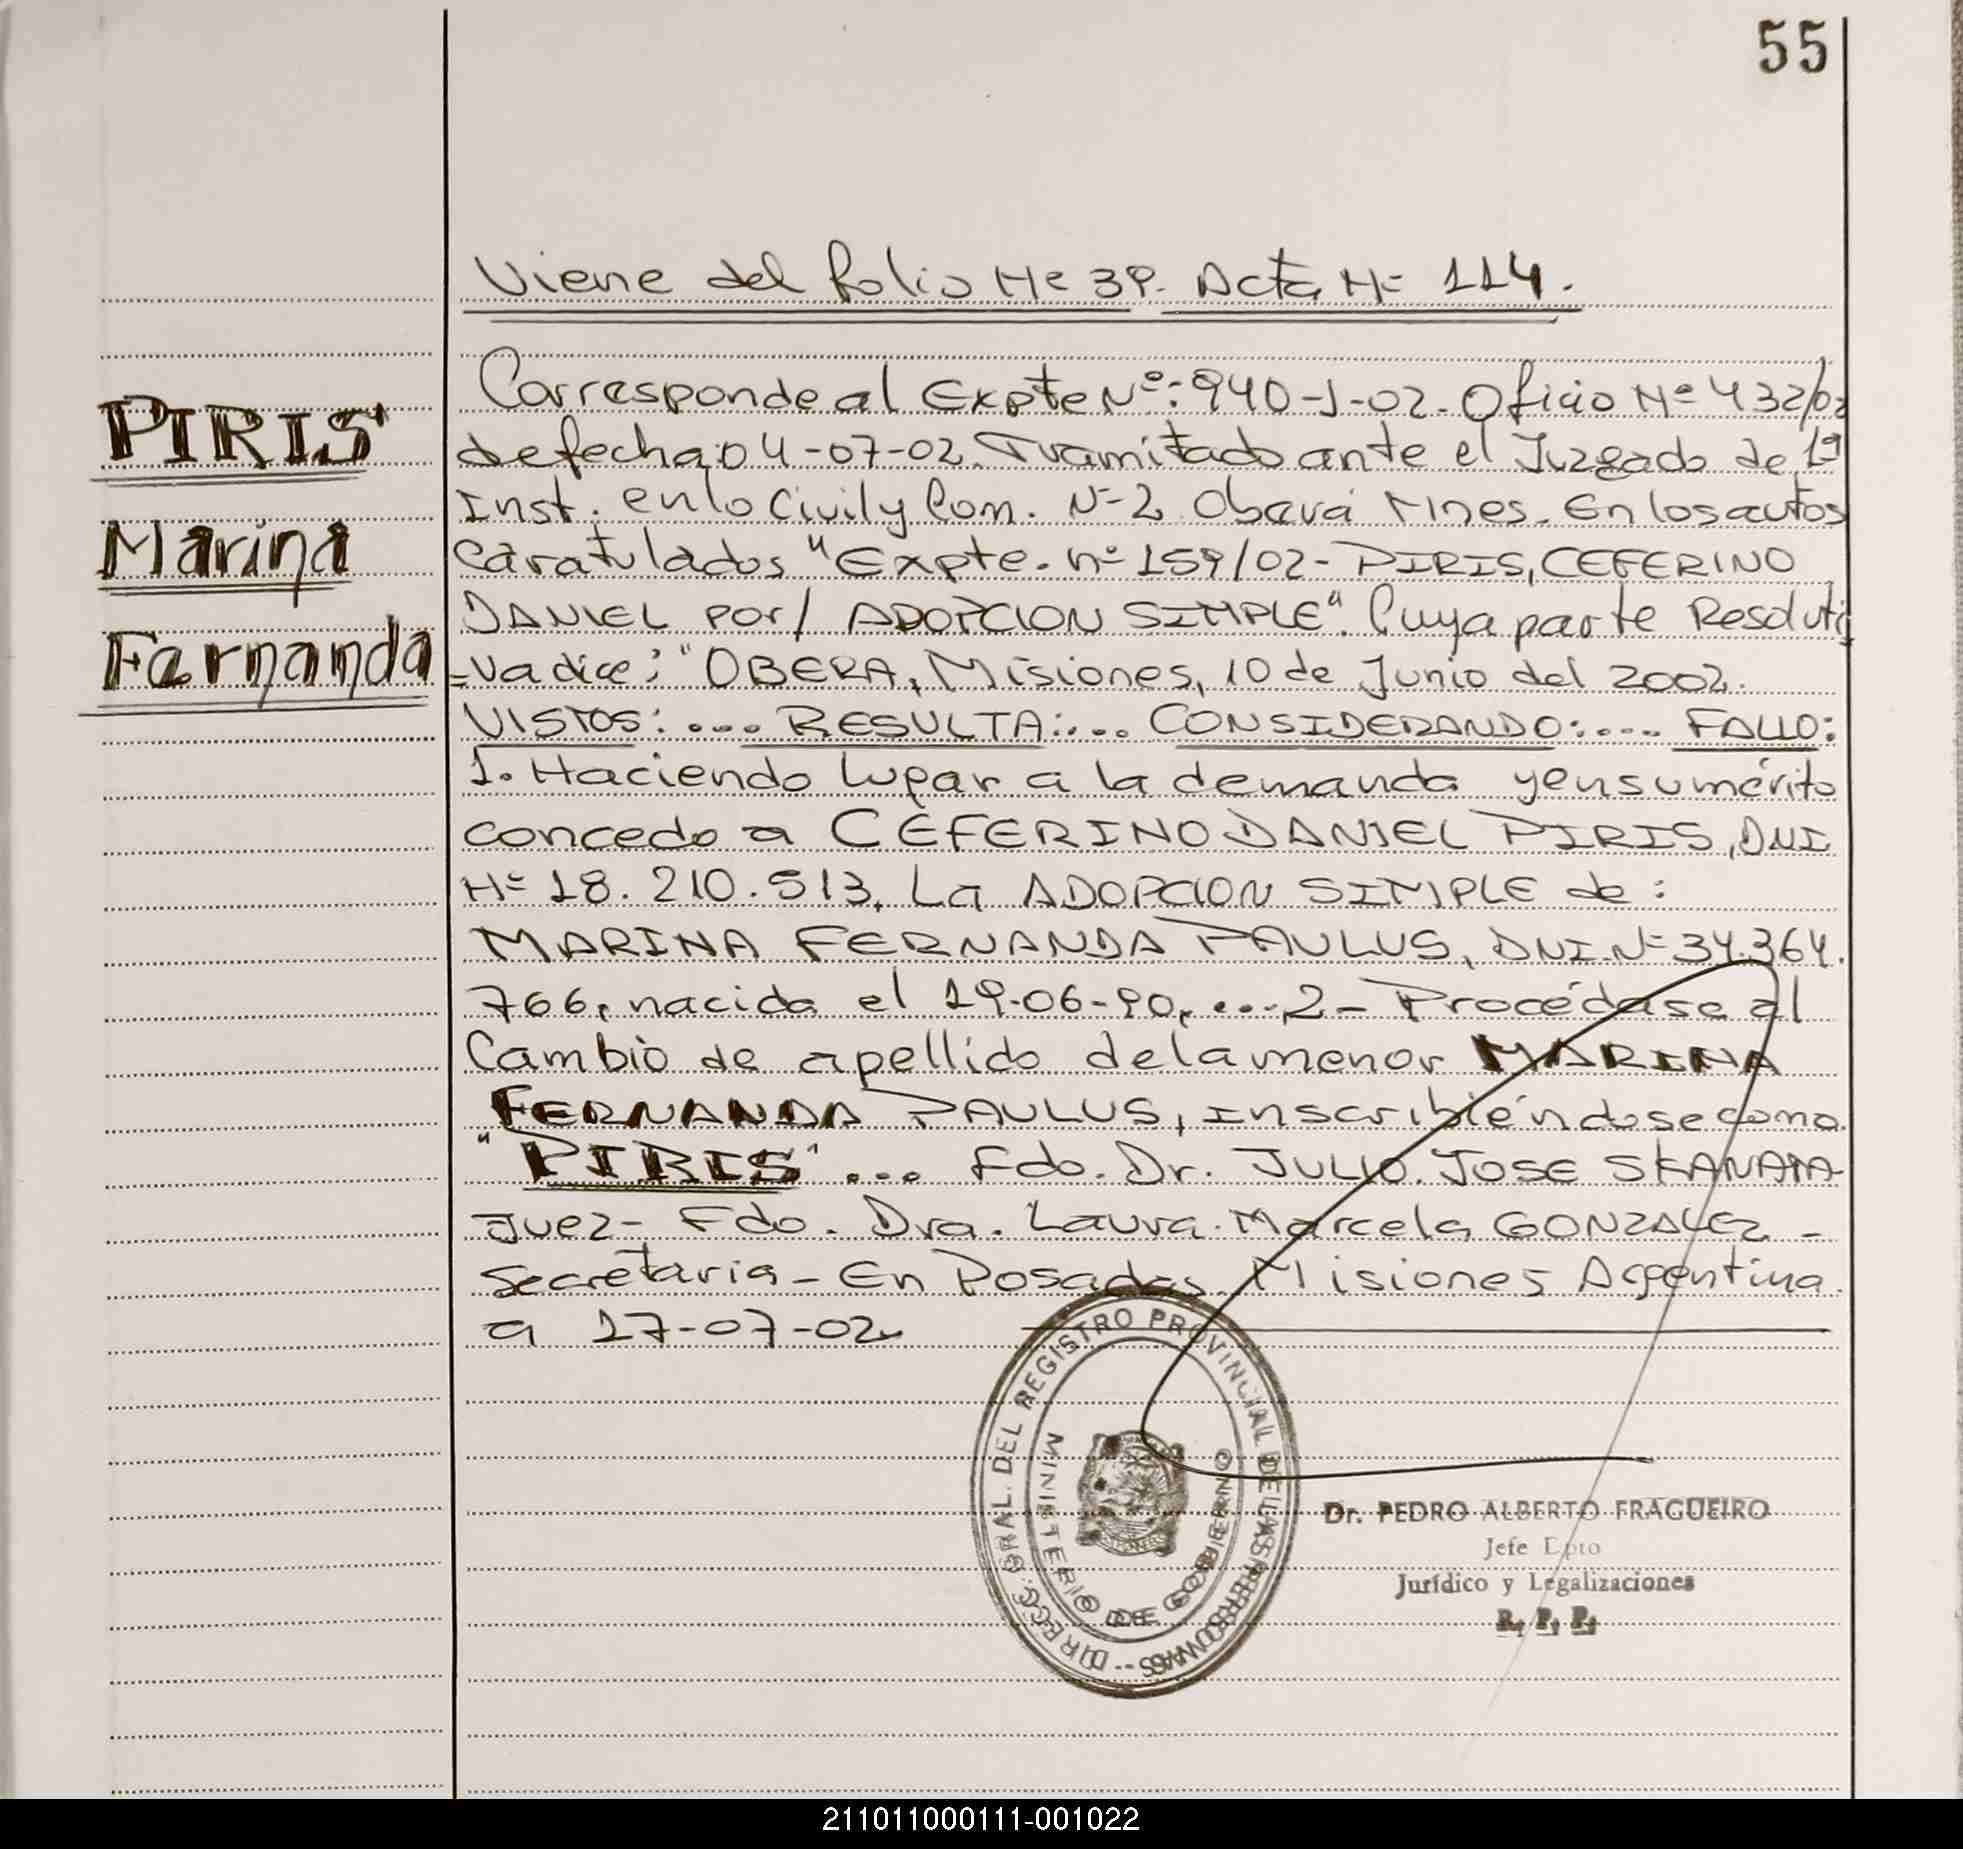 55
Viene del folio Nº 39. Acta Nº 114.
PIRIS
Marina
Fernanda
Corresponde al Expte Nº: 940-J-02. Oficio Nº 432/02
de fecha 04-07-02. Tramitado ante el Juzgado de 1ª
Inst. en lo Civil y Com. Nº 2 Oberá Mnes. En los autos
Caratulados "Expte. nº 159/02- PIRIS, CEFERINO
DANIEL por/ ADOPCION SIMPLE". Cuya parte Resoluti
=va dice: "OBERA, Misiones, 10 de Junio del 2002.
VISTOS: .... RESULTA: .... CONSIDERANDO: .... FALLO:
1. Haciendo lugar a la demanda y en su mérito
concedo a CEFERINO DANIEL PIRIS, DNI
Nº 18.210.513. La ADOPCION SIMPLE de:
MARINA FERNANDA PAULUS, DNI Nº 34.364.
766, nacida el 19-06-90, ...2- Procédase al
Cambio de apellido de la menor MARINA
FERNANDA PAULUS, inscribiéndose como
"PIRIS" ... Fdo. Dr. JULIO JOSE SKANATA
Juez- Fdo. Dra. Laura Marcela GONZALEZ -
Secretaria - En Posadas Misiones Argentina
a 17-07-02.
DIRECC. GRAL. DEL REGISTRO PROVINCIAL DE LAS PERSONAS -
MINISTERIO DE GOBIERNO
Dr. PEDRO ALBERTO FRAGUEIRO
Jefe Dpto
Jurídico y Legalizaciones
R. P. P.
211011000111-001022